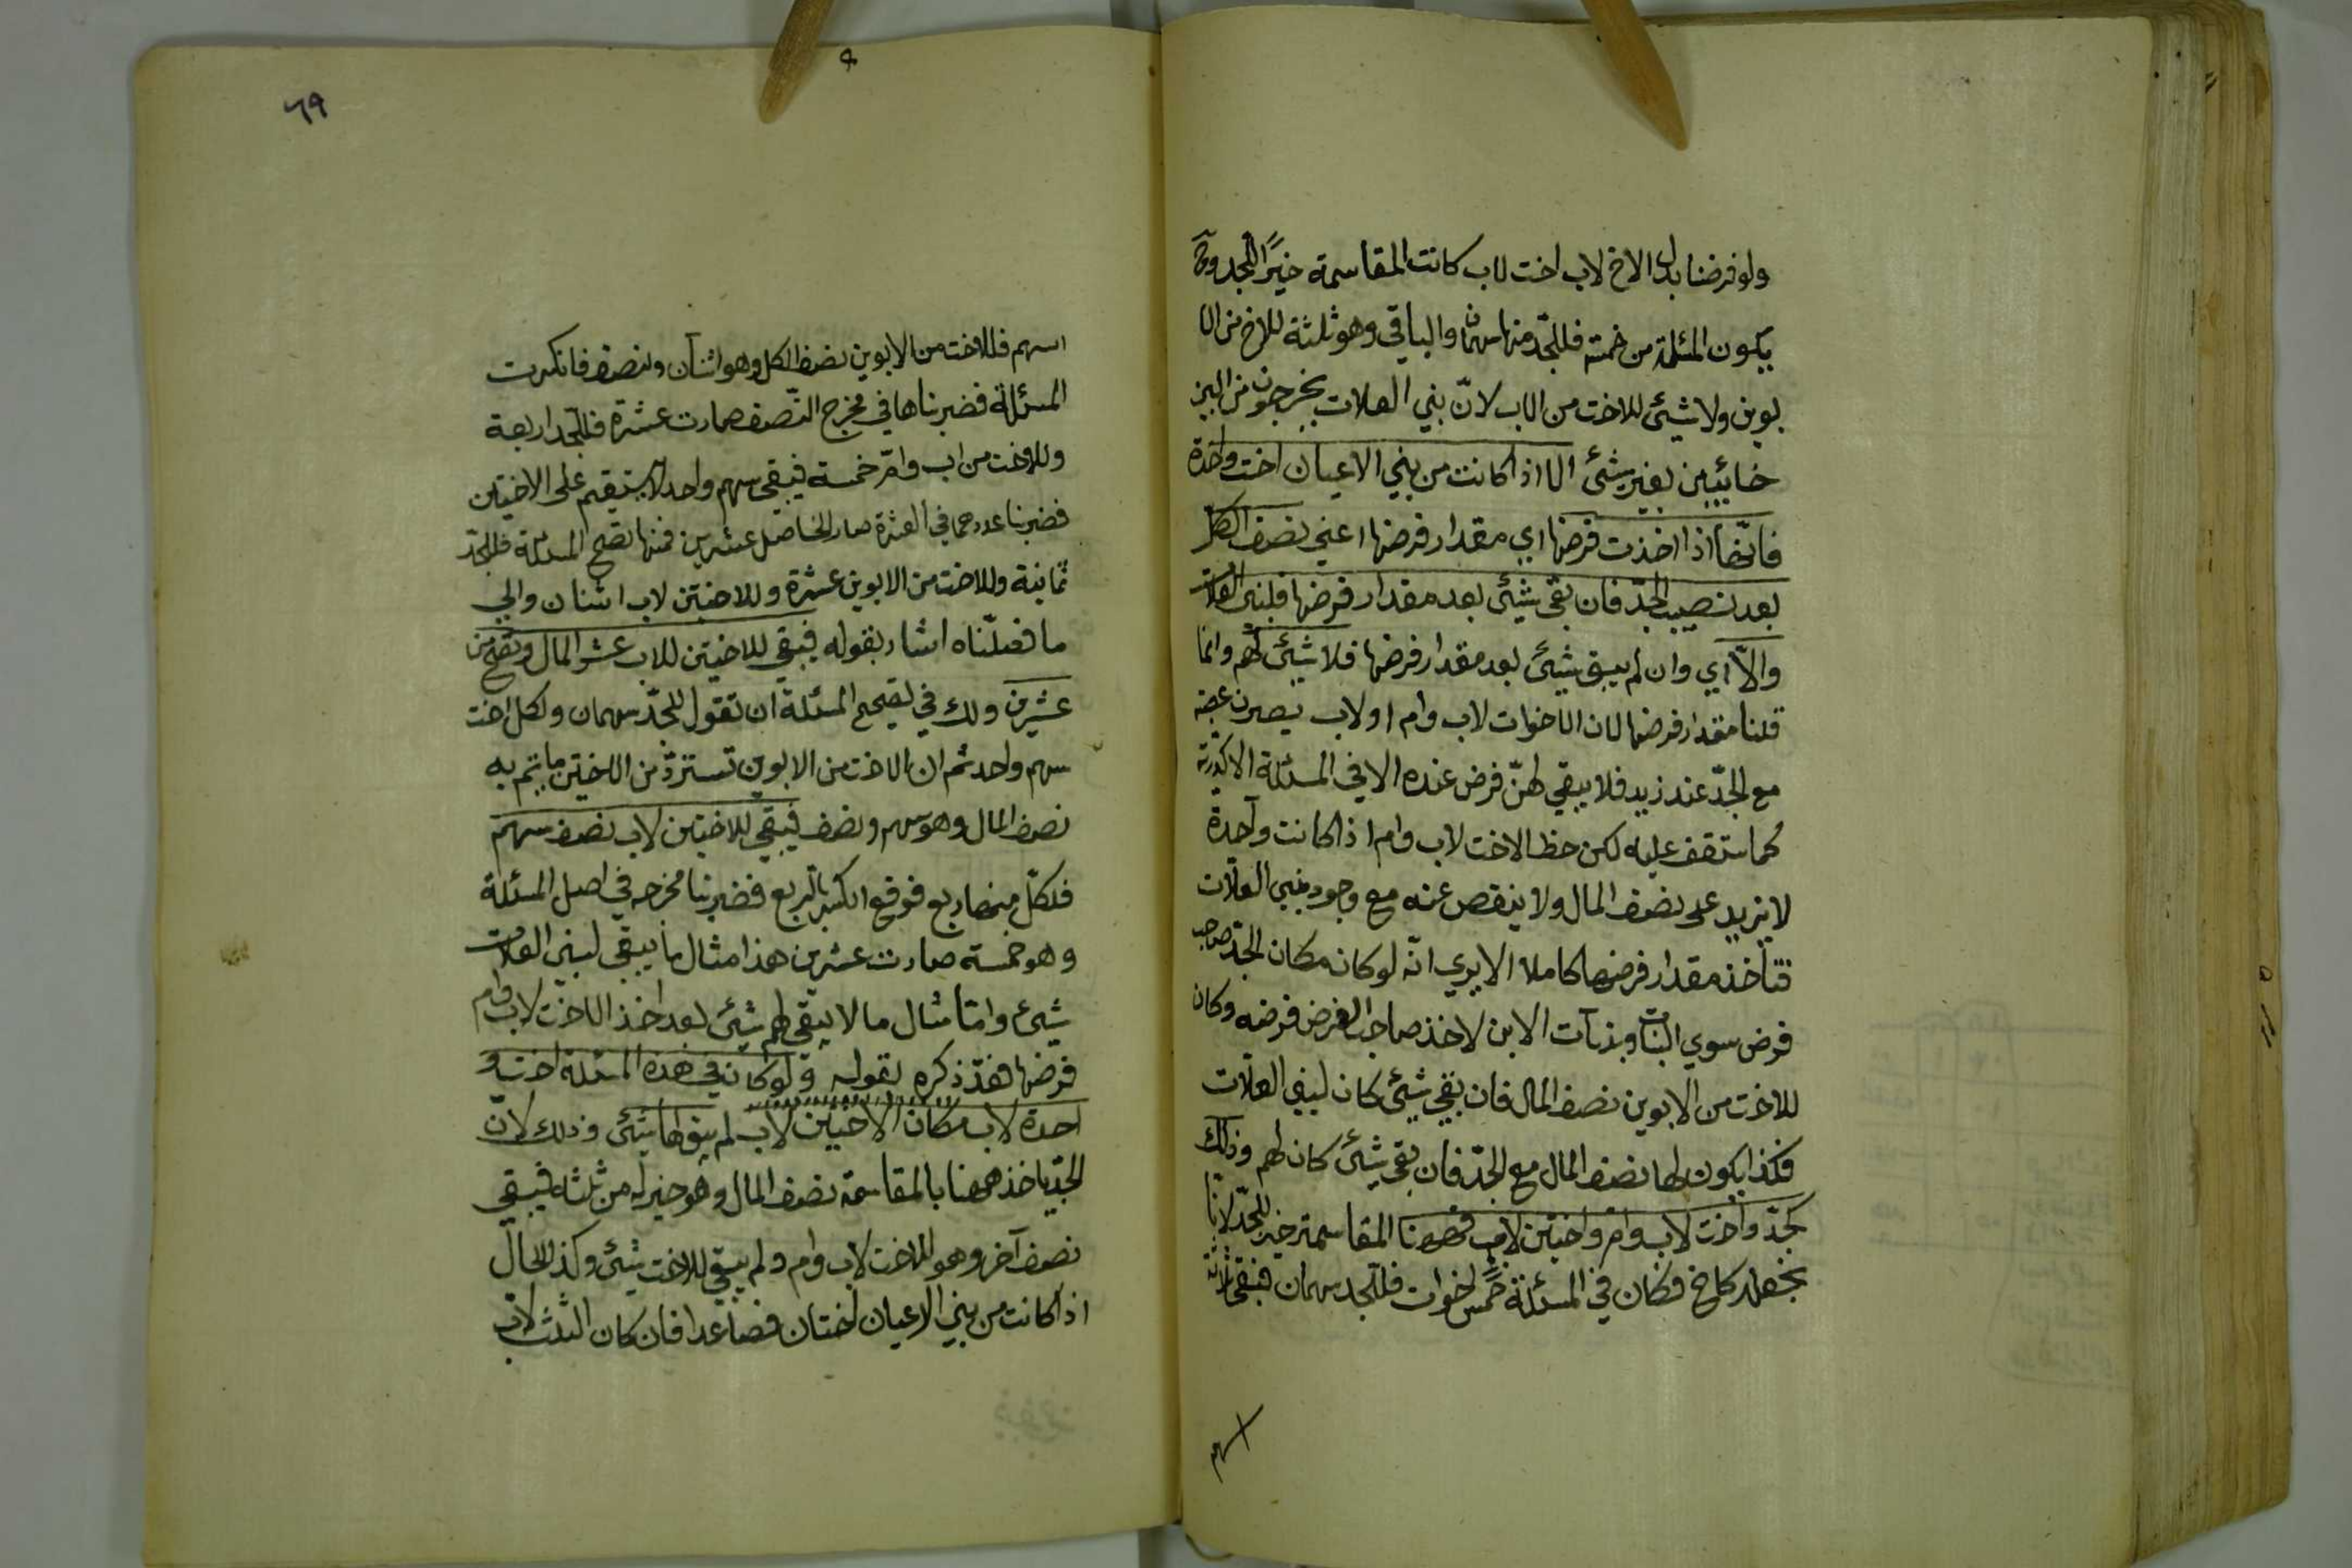 ولو فرضنا بدل الاخ لاب اخت لاب كانت المقاسمة خيرًا للجد وح
يكون المسئلة من خمسة فللجد منها سهمان والباقي وهو ثلثة للاخ من الا
بوين ولا شيئ للاخت من الاب لانّ بني العلات يخرجون من البين
خائبين بغير شيئ الا اذا كانت من بني الاعيان اخت واحدة
فانّها اذا اخذت فرضها اي مقدار فرضها اعني نصف الكل
بعد نصيب الجدّ فان بقي شيئ بعد مقدار فرضها فلبني العلات
والاّ اي وان لم يبق شيئ بعد مقدار فرضها فلا شيئ لهم وانما
قلنا مقدار فرضها لان الاخوات لاب وام او لاب يصرن عصبة
مع الجدّ عند زيد فلا يبقي لهنّ فرض عنده الا في المسئلة الاكدرية
كما ستقف عليه لكن حظ الاخت لاب وام اذا كانت واحدة
لا يزيد على نصف المال ولا ينقص عنه مع وجود بني العلات
فتأخذ مقدار فرضها كاملا الا يري انّه لو كان مكان الجدّ صاحب
فرض سوي البنات وبنات الابن لاخذ صاحب الفرض فرضه وكان
للاخت من الابوين نصف المال فان بقي شيئ كان لبني العلات
فكذا يكون لها نصف المال مع الجدّ فان بقي شيئ كان لهم وذلك
كجدّ واخت لاب وام واختين لاب فههنا المقاسمة خير للجدّ لانا
نجعله كاخ فكان في المسئلة خمس اخوات فللجد سهمان فبقي ثلثة
اسهم
٦٩
اسهم فللاخت من الابوين نصف الكل وهو اثنان ونصف فانكسرت
المسئلة فضربناها في مخرج النّصف صارت عشرة فللجد اربعة
وللاخت من اب وامّ خمسة فيبقي سهم واحد لا يستقيم على الاختين
فضربنا عددهما في العشرة صار الحاصل عشرين فمنها تصح المسئلة فللجدّ
ثمانية وللاخت من الابوين عشرة وللاختين لاب اثنان والي
ما فصلّناه اشار بقوله فيبقي للاختين للاب عشر المال وتصح من
عشرين ولك في تصحيح المسئلة ان تقول للجدّ سهمان ولكل اخت
سهم واحد ثم ان الاخت من الابوين تستردّ من الاختين ما يتم به
نصف المال وهو سهم ونصف فيبقي للاختين لاب نصف سهم
فلكلّ منهما ربع فوقع الكسر بالربع فضربنا مخرجه في اصل المسئلة
وهو خمسة صارت عشرين هذا مثال ما يبقي لبني العلات
شيئ وامّا مثال ما لا يبقي لهم شيئ بعد اخذ الاخت لاب وام
فرضها فقد ذكره بقوله ولو كان في هذه المسئلة اخت و
احدة لاب مكان الاختين لاب لم يبق لها شيئ وذلك لانّ
الجدّ يأخذ ههنا بالمقاسمة نصف المال وهو خير له من ثلثه فيبقي
نصف آخر وهو للاخت لاب وام ولم يبق للاخت شيئ وكذا الحال
اذا كانت من بني الاعيان اختان فصاعدا فان كان الثلث لاب